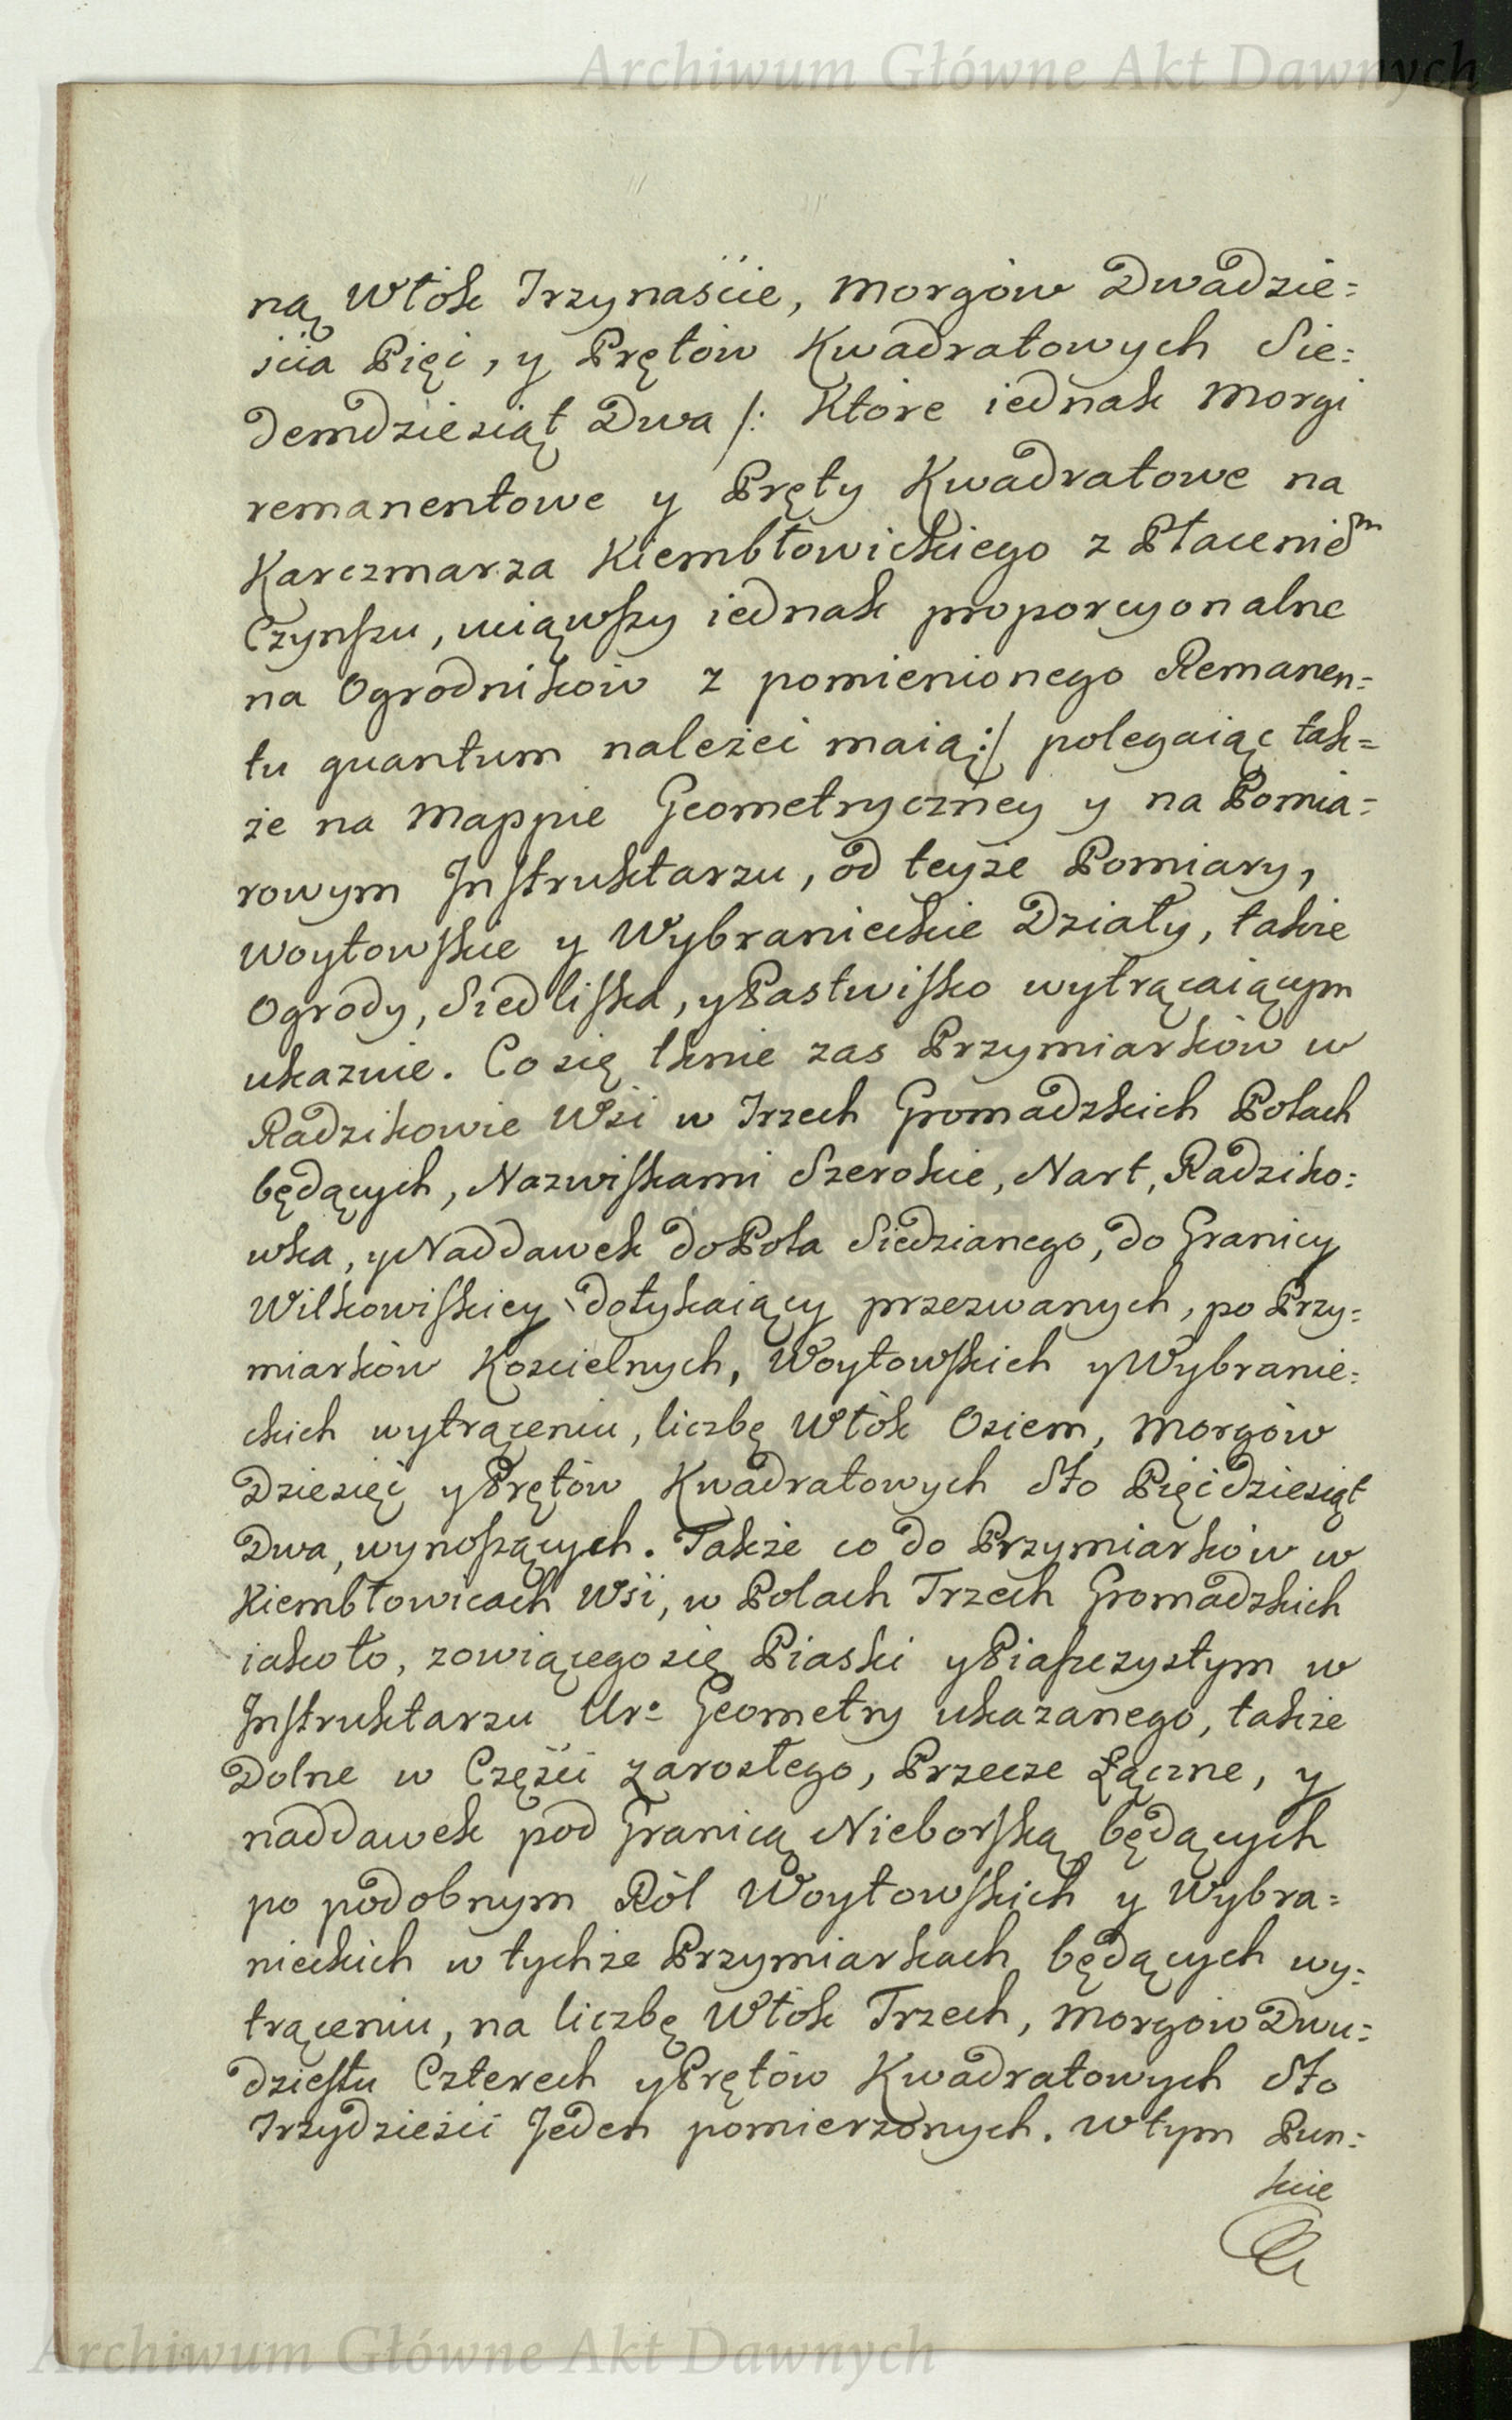 Archiwum Główne Akt Dawnych
ną Włók Trzynaście, Morgów Dwadzie=
ścia Pięć, y Prętów Kwadratowych Sie=
demdziesiąt Dwa /: Które iednak Morgi
remanentowe y Pręty Kwadratowe na
Karczmarza Kiembłowickiego z Płaceniem
Czynszu, uiąwszy iednak proporcyonalne
na Ogrodników z pomienionego Remanen=
tu quantum należeć maią :/ polegaiąc tak=
że na Mappie Geometryczney y na Pomia=
rowym Instruktarzu, od teyże Pomiary,
Woytowskie y Wybranieckie Działy, także
Ogrody, Siedliska, y Pastwisko wytrącaiącym
ukazuie. Co się tknie zas Przymiarków w
Radzikowie Wsi w Trzech Gromadzkich Polach
będących, Nazwiskami Szerokie, Nart, Radziko=
wka, y Naddawek do Pola Siedzianego, do Granicy
Wilkowiskiey dotykaiący przezwanych, po Przy=
miarków Koscielnych, Woytowskich y Wybranie=
ckich wytrąceniu, liczbę Włók Osiem, Morgów
Dziesięć y Prętów Kwadratowych Sto Pięćdziesiąt
Dwa, wynoszących. Także co do Przymiarków w
Kiembłowicach Wsi, w Polach Trzech Gromadzkich
iako to, zowiącego się Piaski y Piaszczystym w
Instruktarzu Uro Geometry ukazanego, także
Dolne w Części zarosłego, Przecze Łączne, y
naddawek pod Granicą Nieborską będących
po podobnym Ról Woytowskich y Wybra=
nieckich w tychże Przymiarkach będących wy=
trąceniu, na liczbę Włók Trzech, Morgów Dwu=
dziestu Czterech y Prętów Kwadratowych Sto
Trzydzieści Jeden pomierzonych. W tym Pun=
kcie
Archiwum Główne Akt Dawnych